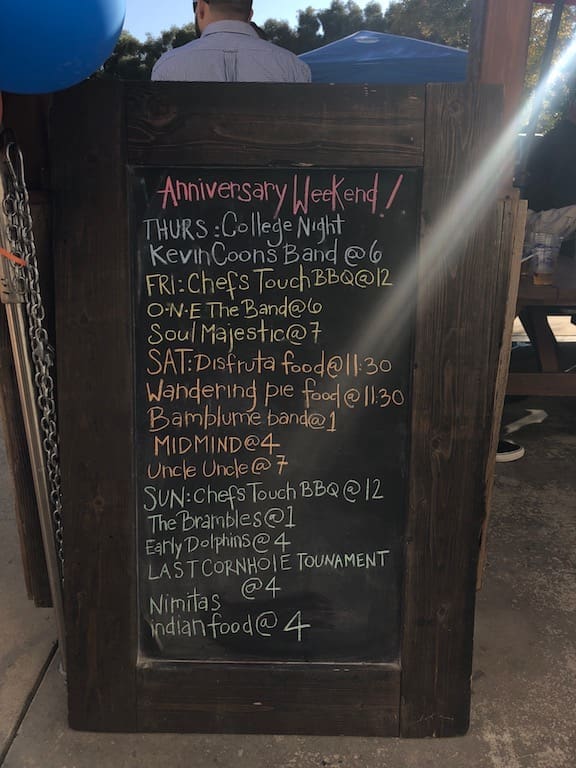 Anniversary Weekend!
THURS: College Night
Kevin Coons Band @6
FRI: Chefs Touch BBQ@12
O·N·E The Band@6
Soul Majestic@7
SAT: Disfruta food@11:30
Wandering pie food@11:30
Bamblume band@1
MIDMIND@4
Uncle Uncle@7
SUN: Chefs Touch BBQ@12
The Brambles@1
Early Dolphins@4
LAST CORNHOLE TOUNAMENT
@4
Nimitas
indian food@4